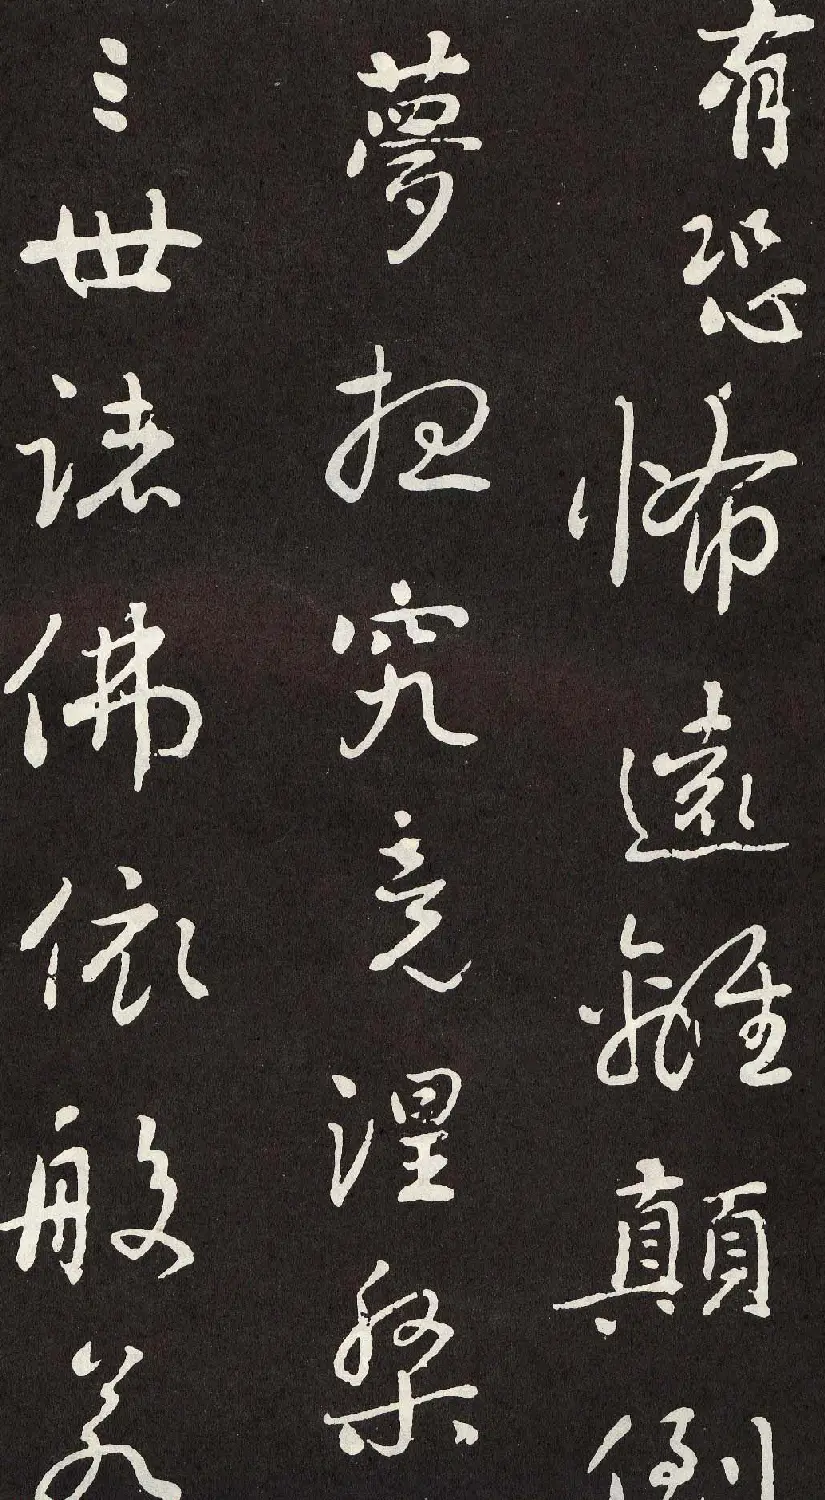 有恐怖遠離顛倒
夢想究竟涅槃
三世諸佛依般若